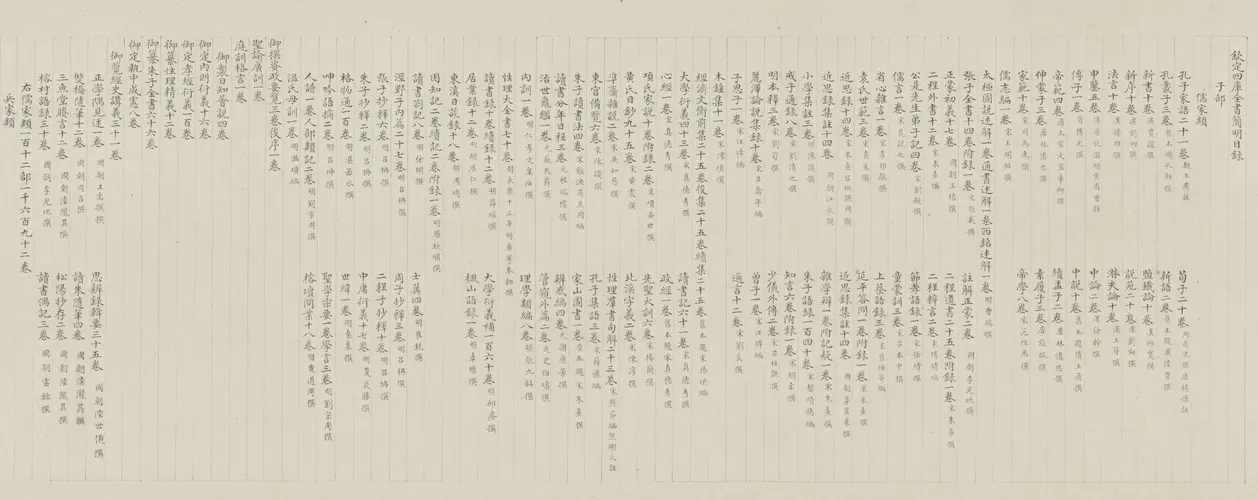 欽定四庫全書簡明目録
子部
儒家類
孔子家語二十一卷 魏王肅註 荀子二十卷 周荀況撰唐楊倞註
孔叢子三卷 舊本題孔鮒撰 新語二卷 舊本題漢陸賈撰
新書十卷 漢賈誼撰 鹽鐵論十卷 漢桓寬撰
新序十卷 漢劉向撰 說苑二十卷 漢劉向撰
法言十卷 漢揚雄撰 潛夫論十卷 漢王符撰
申鑒五卷 漢荀悅撰明黃省曾註 中論二卷 漢徐幹撰
傅子一卷 晉傅玄撰 中說十卷 舊本題隋王通撰
帝範四卷 唐太宗文皇帝御撰 續孟子二卷 唐林慎思撰
伸蒙子三卷 唐林慎思撰 素履子三卷 唐張弧撰
家範十卷 宋司馬光撰 帝學八卷 宋范祖禹撰
儒志編一卷 宋王開祖撰
太極圖說述解一卷通書述解一卷西銘述解一卷 明曹端撰
張子全書十四卷附錄一卷 宋張載撰 註解正蒙二卷 國朝李光地撰
正蒙初義十七卷 國朝王植撰 二程遺書二十五卷附錄一卷 宋朱熹編
二程外書十二卷 宋朱熹編 二程粹言二卷 宋楊時編
公是先生弟子記四卷 宋劉敞撰 節孝語錄一卷 宋徐積撰
儒言一卷 宋晁說之撰 童蒙訓三卷 宋呂本中撰
省心雜言一卷 宋李邦獻撰 上蔡語錄三卷 宋曾恬等編
袁氏世範三卷 宋袁采撰 延平答問一卷附錄一卷 宋朱熹撰
近思錄十四卷 宋朱熹呂祖謙同撰 近思錄集註十四卷 國朝茅星來撰
近思錄集註十四卷 國朝江永撰 雜學辨一卷附記疑一卷 宋朱熹撰
小學集註六卷 明陳選撰 朱子語類一百四十卷 宋黎靖德編
戒子通錄八卷 宋劉清之撰 知言六卷附錄一卷 宋胡宏撰
明本釋三卷 宋劉荀撰 少儀外傳二卷 宋呂祖謙撰
麗澤論說集錄十卷 宋呂喬年編 曾子一卷 宋汪晫編
子思子一卷 宋汪晫編 邇言十二卷 宋劉炎撰
木鐘集十一卷 宋陳埴撰
經濟文衡前集二十五卷後集二十五卷續集二十二卷 舊本題宋滕珙編
大學衍義四十三卷 宋真德秀撰 讀書記六十一卷 宋真德秀撰
心經一卷 宋真德秀撰 政經一卷 舊本題宋真德秀撰
項氏家說十卷附錄二卷 宋項安世撰 先聖大訓六卷 宋楊簡撰
黃氏日鈔九十五卷 宋黃震撰 北溪字義二卷 宋陳淳撰
準齋雜說二卷 宋吳如愚撰 性理羣書句解二十三卷 宋熊節編熊剛大註
東宮備覽六卷 宋陳謨撰 孔子集語三卷 宋薛據編
朱子讀書法四卷 宋張洪齊熙同編 家山圖書一卷 舊本題宋朱熹撰
讀書分年日程三卷 元程端禮撰 辨惑編四卷 元謝應芳撰
治世龜鑑一卷 元蘇天爵撰 管窺外篇二卷 元史伯璿撰
內訓一卷 明仁孝文皇后撰 理學類編八卷 明張九韶撰
性理大全書七十卷 明永樂十三年胡廣等奉勅撰
讀書錄十卷續錄十二卷 明薛瑄撰 大學衍義補一百六十卷 明邱濬撰
居業錄十二卷 明胡居仁撰 楓山語錄一卷 明章懋撰
東溪日談錄十八卷 明周琦撰
困知記二卷續記二卷附錄一卷 明羅欽順撰
讀書劄記八卷 明徐問撰 士翼四卷 明崔銑撰
涇野子內篇二十七卷 明呂柟撰 周子抄釋三卷 明呂柟撰
張子抄釋六卷 明呂柟撰 二程子抄釋十卷 明呂柟撰
朱子抄釋二卷 明呂柟撰 中庸衍義十七卷 明夏良勝撰
格物通一百卷 明湛若水撰 世緯一卷 明袁袠撰
呻吟語摘二卷 明呂坤撰 聖學宗要一卷學言三卷 明劉宗周撰
人譜一卷人譜類記二卷 明劉宗周撰 榕壇問業十八卷 明黃道周撰
溫氏母訓一卷 明溫璜編
御撰資政要覽三卷後序一卷
聖諭廣訓一卷
庭訓格言一卷
御製日知薈說四卷
御定內則衍義十六卷
御定孝經衍義一百卷
御纂性理精義十二卷
御纂朱子全書六十六卷
御定執中成憲八卷
御覽經史講義三十一卷
正學隅見述一卷 國朝王宏撰撰 思辨錄輯要三十五卷 國朝陸世儀撰
雙橋隨筆十二卷 國朝周召撰 讀朱隨筆四卷 國朝陸隴其撰
三魚堂賸言十二卷 國朝陸隴其撰 松陽抄存二卷 國朝陸隴其撰
榕村語錄三十卷 國朝李光地撰 讀書偶記三卷 國朝雷鋐撰
右儒家類一百十二部一千六百九十二卷
兵家類